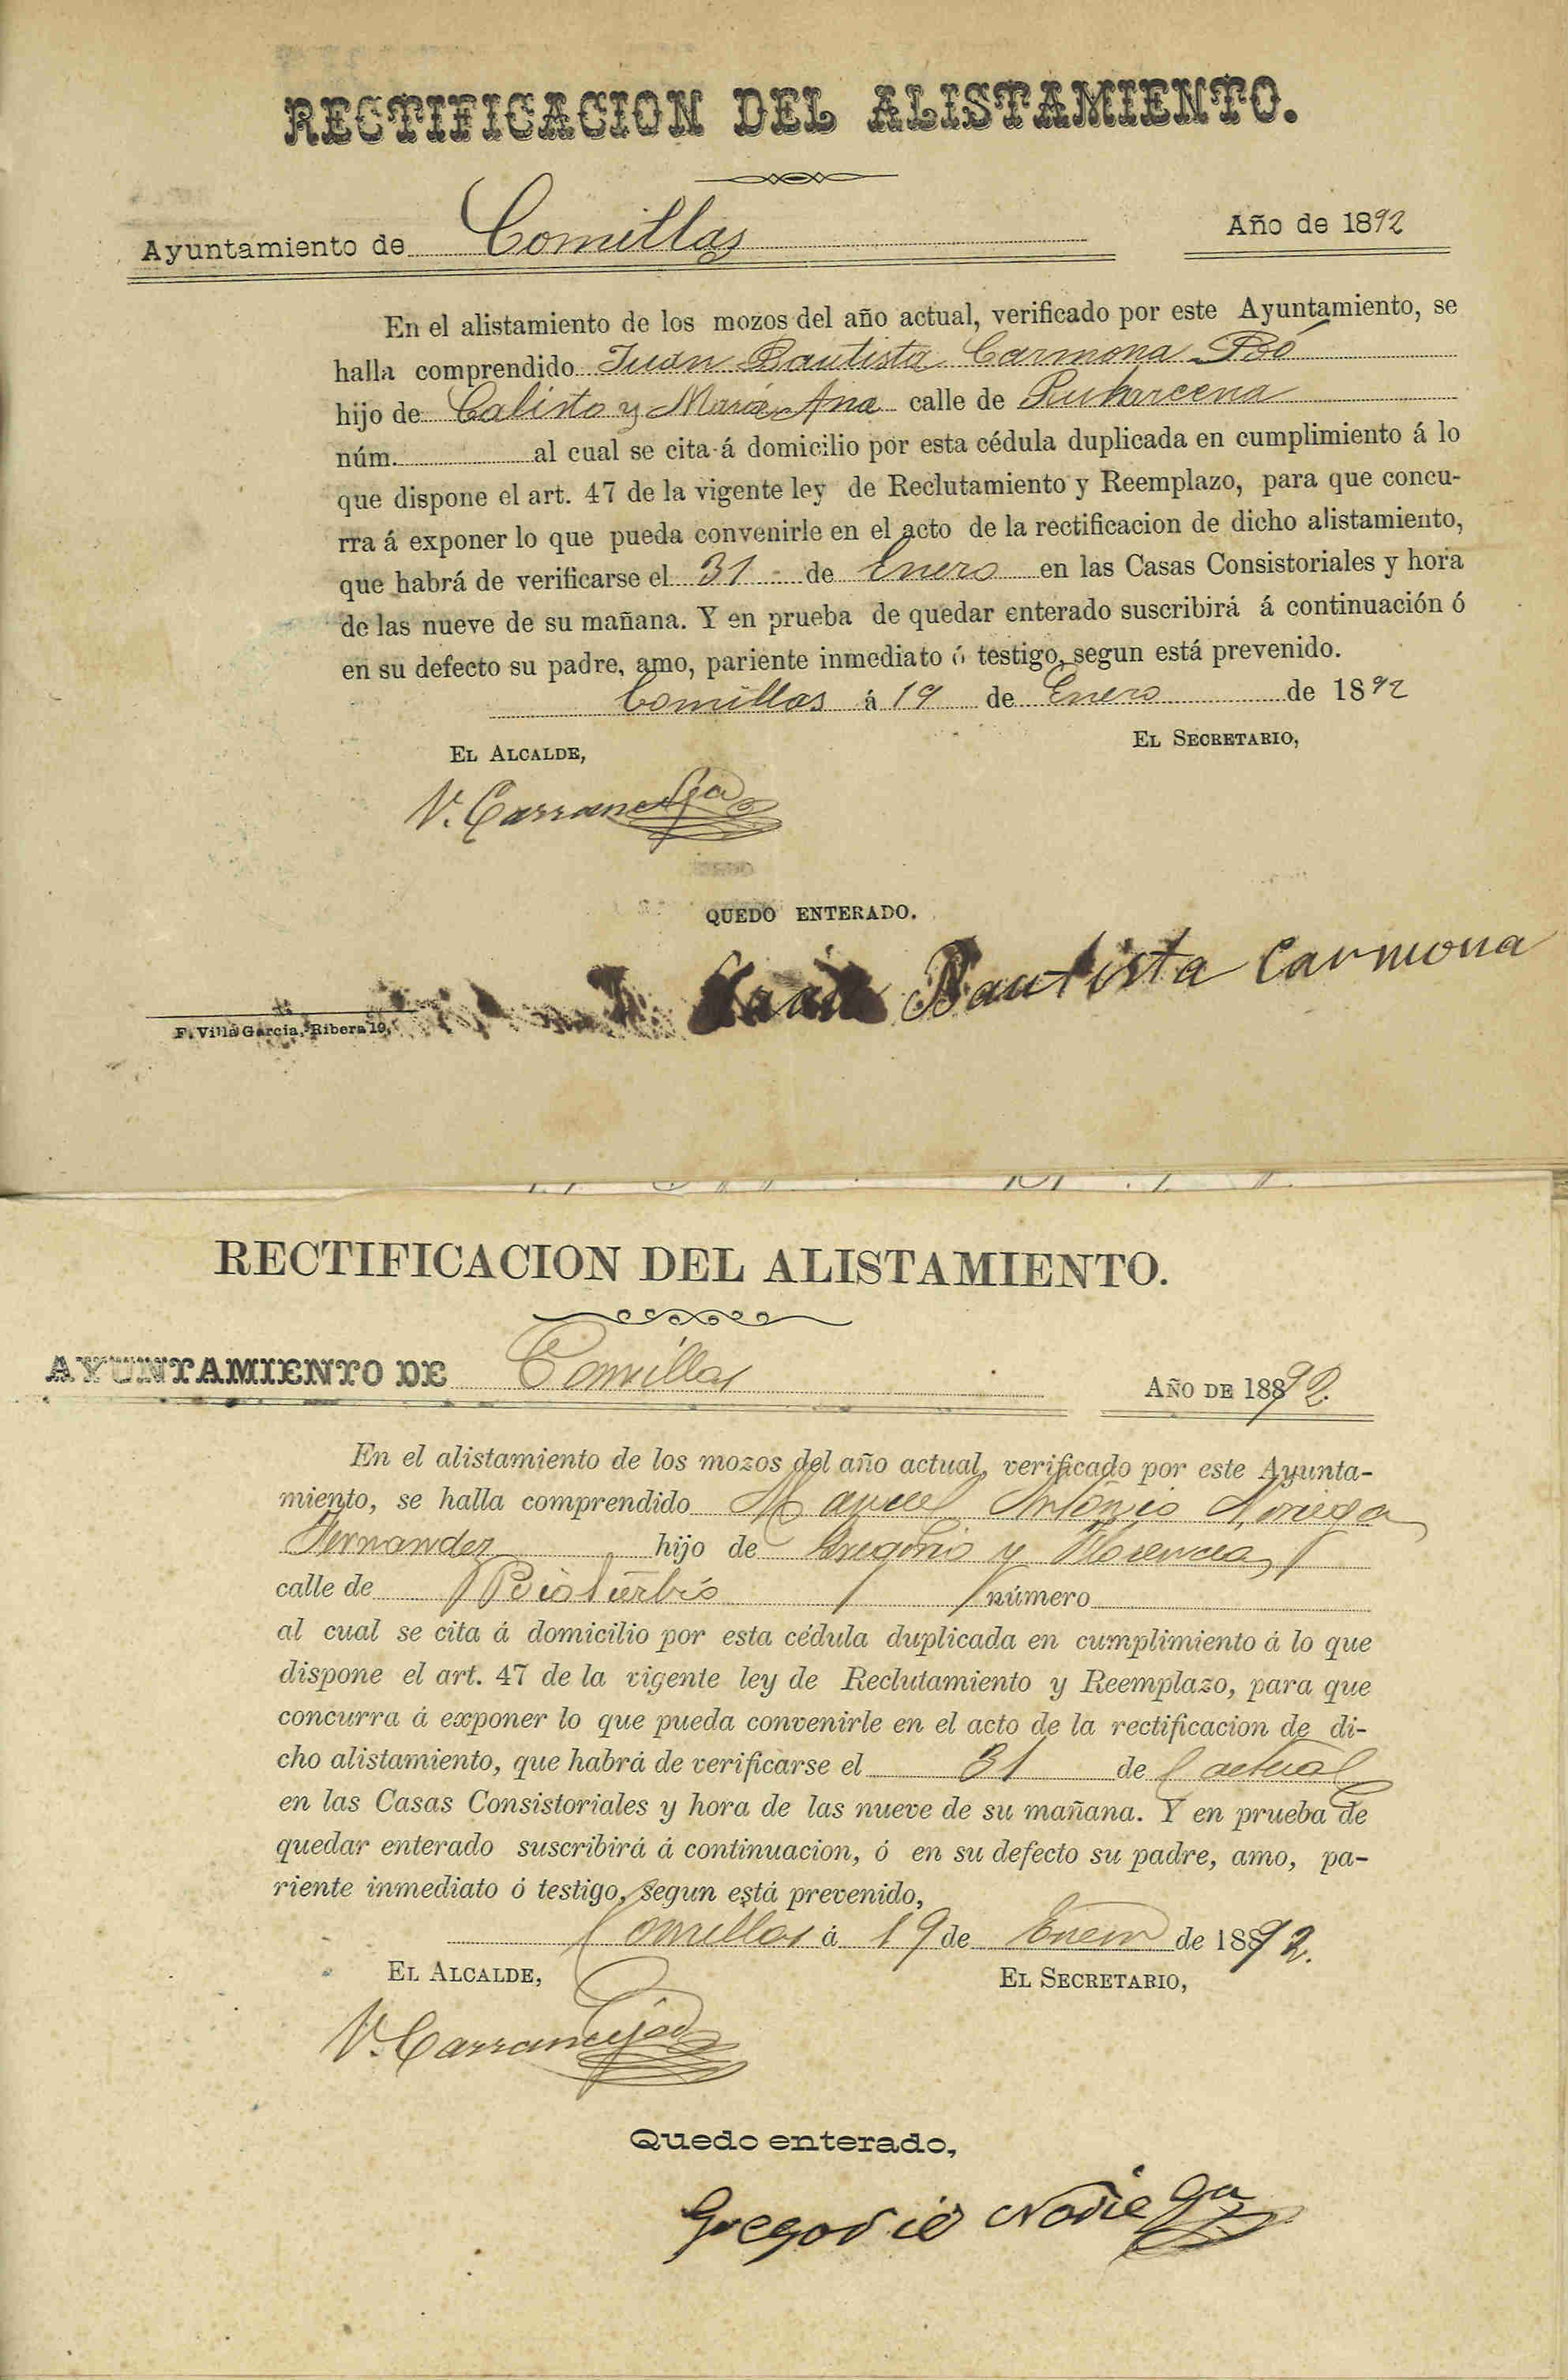 RECTIFICACION DEL ALISTAMIENTO.
Ayuntamiento de Comillas Año de 1892
En el alistamiento de los mozos del año actual, verificado por este Ayuntamiento, se
halla comprendido Juan Bautista Carmona Póo
hijo de Calisto y María Ana calle de Rubarcena
núm. al cual se cita á domicilio por esta cédula duplicada en cumplimiento á lo
que dispone el art. 47 de la vigente ley de Reclutamiento y Reemplazo, para que concu-
rra á exponer lo que pueda convenirle en el acto de la rectificacion de dicho alistamiento,
que habrá de verificarse el 31 de Enero en las Casas Consistoriales y hora
de las nueve de su mañana. Y en prueba de quedar enterado suscribirá á continuación ó
en su defecto su padre, amo, pariente inmediato ó testigo, segun está prevenido.
Comillas á 19 de Enero de 1892
EL ALCALDE, EL SECRETARIO,
V. Carranceja
QUEDO ENTERADO.
Juan Bautista Carmona
F. Villa García, Ribera 19.
RECTIFICACION DEL ALISTAMIENTO.
AYUNTAMIENTO DE Comillas AÑO DE 18892.
En el alistamiento de los mozos del año actual, verificado por este Ayunta-
miento, se halla comprendido Manuel Antonio Noriega
Fernandez hijo de Gregorio y Florencia
calle de número
al cual se cita á domicilio por esta cédula duplicada en cumplimiento á lo que
dispone el art. 47 de la vigente ley de Reclutamiento y Reemplazo, para que
concurra á exponer lo que pueda convenirle en el acto de la rectificacion de di-
cho alistamiento, que habrá de verificarse el 31 de l actual
en las Casas Consistoriales y hora de las nueve de su mañana. Y en prueba de
quedar enterado suscribirá á continuacion, ó en su defecto su padre, amo, pa-
riente inmediato ó testigo, segun está prevenido,
Comillas á 19 de Enero de 18892.
EL ALCALDE, EL SECRETARIO,
V. Carranceja
Quedo enterado,
Gregorio Noriega